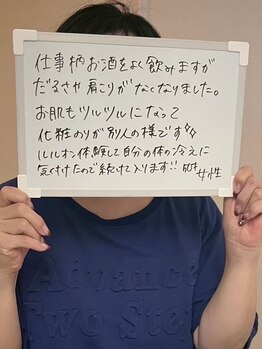 仕事柄お酒をよく飲みますが
だるさや肩こりがなくなりました。
お肌もツルツルになって
化粧のりが別人の様です
ルルオン体験して自分の体の冷えに
気付けたので続けて入ります!!
女性
Advance
Two Step